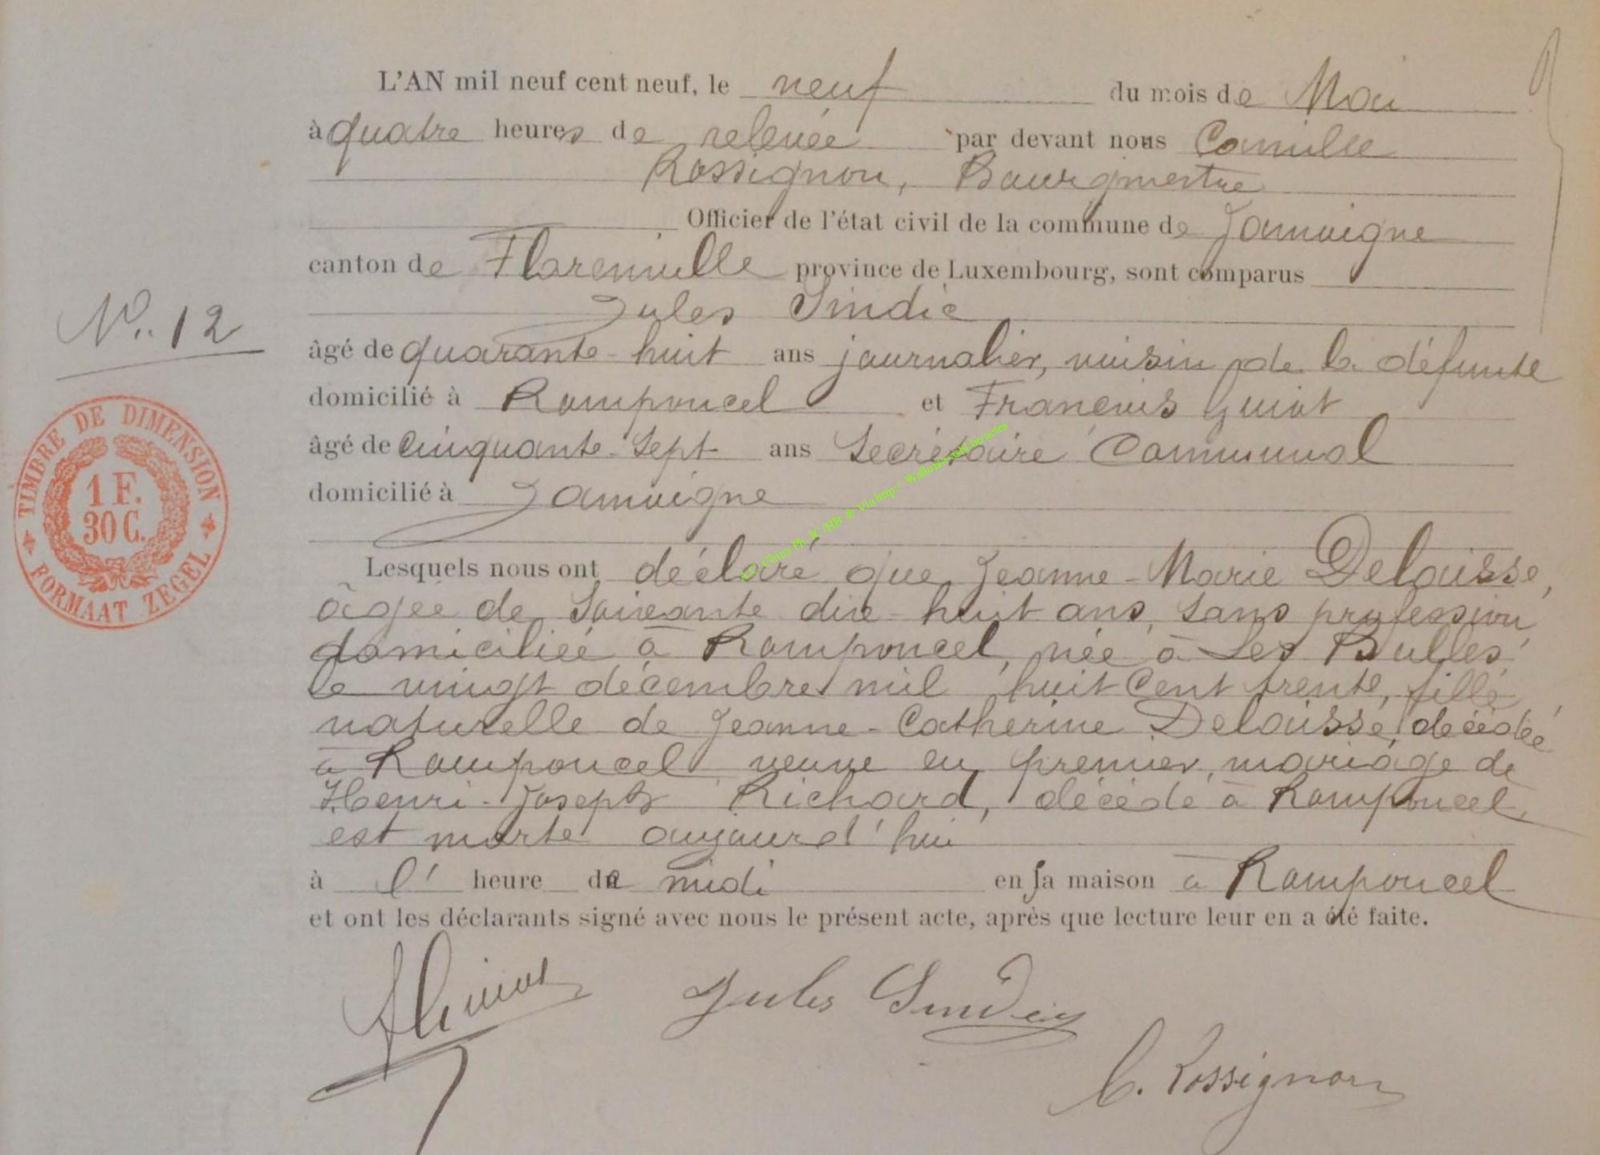 L'AN mil neuf cent neuf, le neuf du mois de Mai
à quatre heures de relevée par devant nous Camille
Rossignon, Bourgmestre
Officier de l'état civil de la commune de Jamoigne
canton de Florenville province de Luxembourg, sont comparus
Jules Sindic
âgé de quarante-huit ans journalier, voisin de la défunte
domicilié à Romponcel et François Guiot
âgé de cinquante-sept ans Secrétaire Communal
domicilié à Jamoigne
Lesquels nous ont déclaré que Jeanne-Marie Delaisse,
âgée de soixante dix-huit ans, sans profession
domiciliée à Romponcel, née à Les Bulles,
le vingt décembre mil huit cent trente, fille
naturelle de Jeanne-Catherine Delaisse, décédée
à Romponcel veuve en premier mariage de
Henri-Joseph Richard, décédé à Romponcel,
est morte aujourd'hui
à l' heure de midi en sa maison à Romponcel
et ont les déclarants signé avec nous le présent acte, après que lecture leur en a été faite.
Jules Sindic
C. Rossignon
No. 12
TIMBRE DE DIMENSION
1 F.
30 C.
FORMAAT ZEGEL